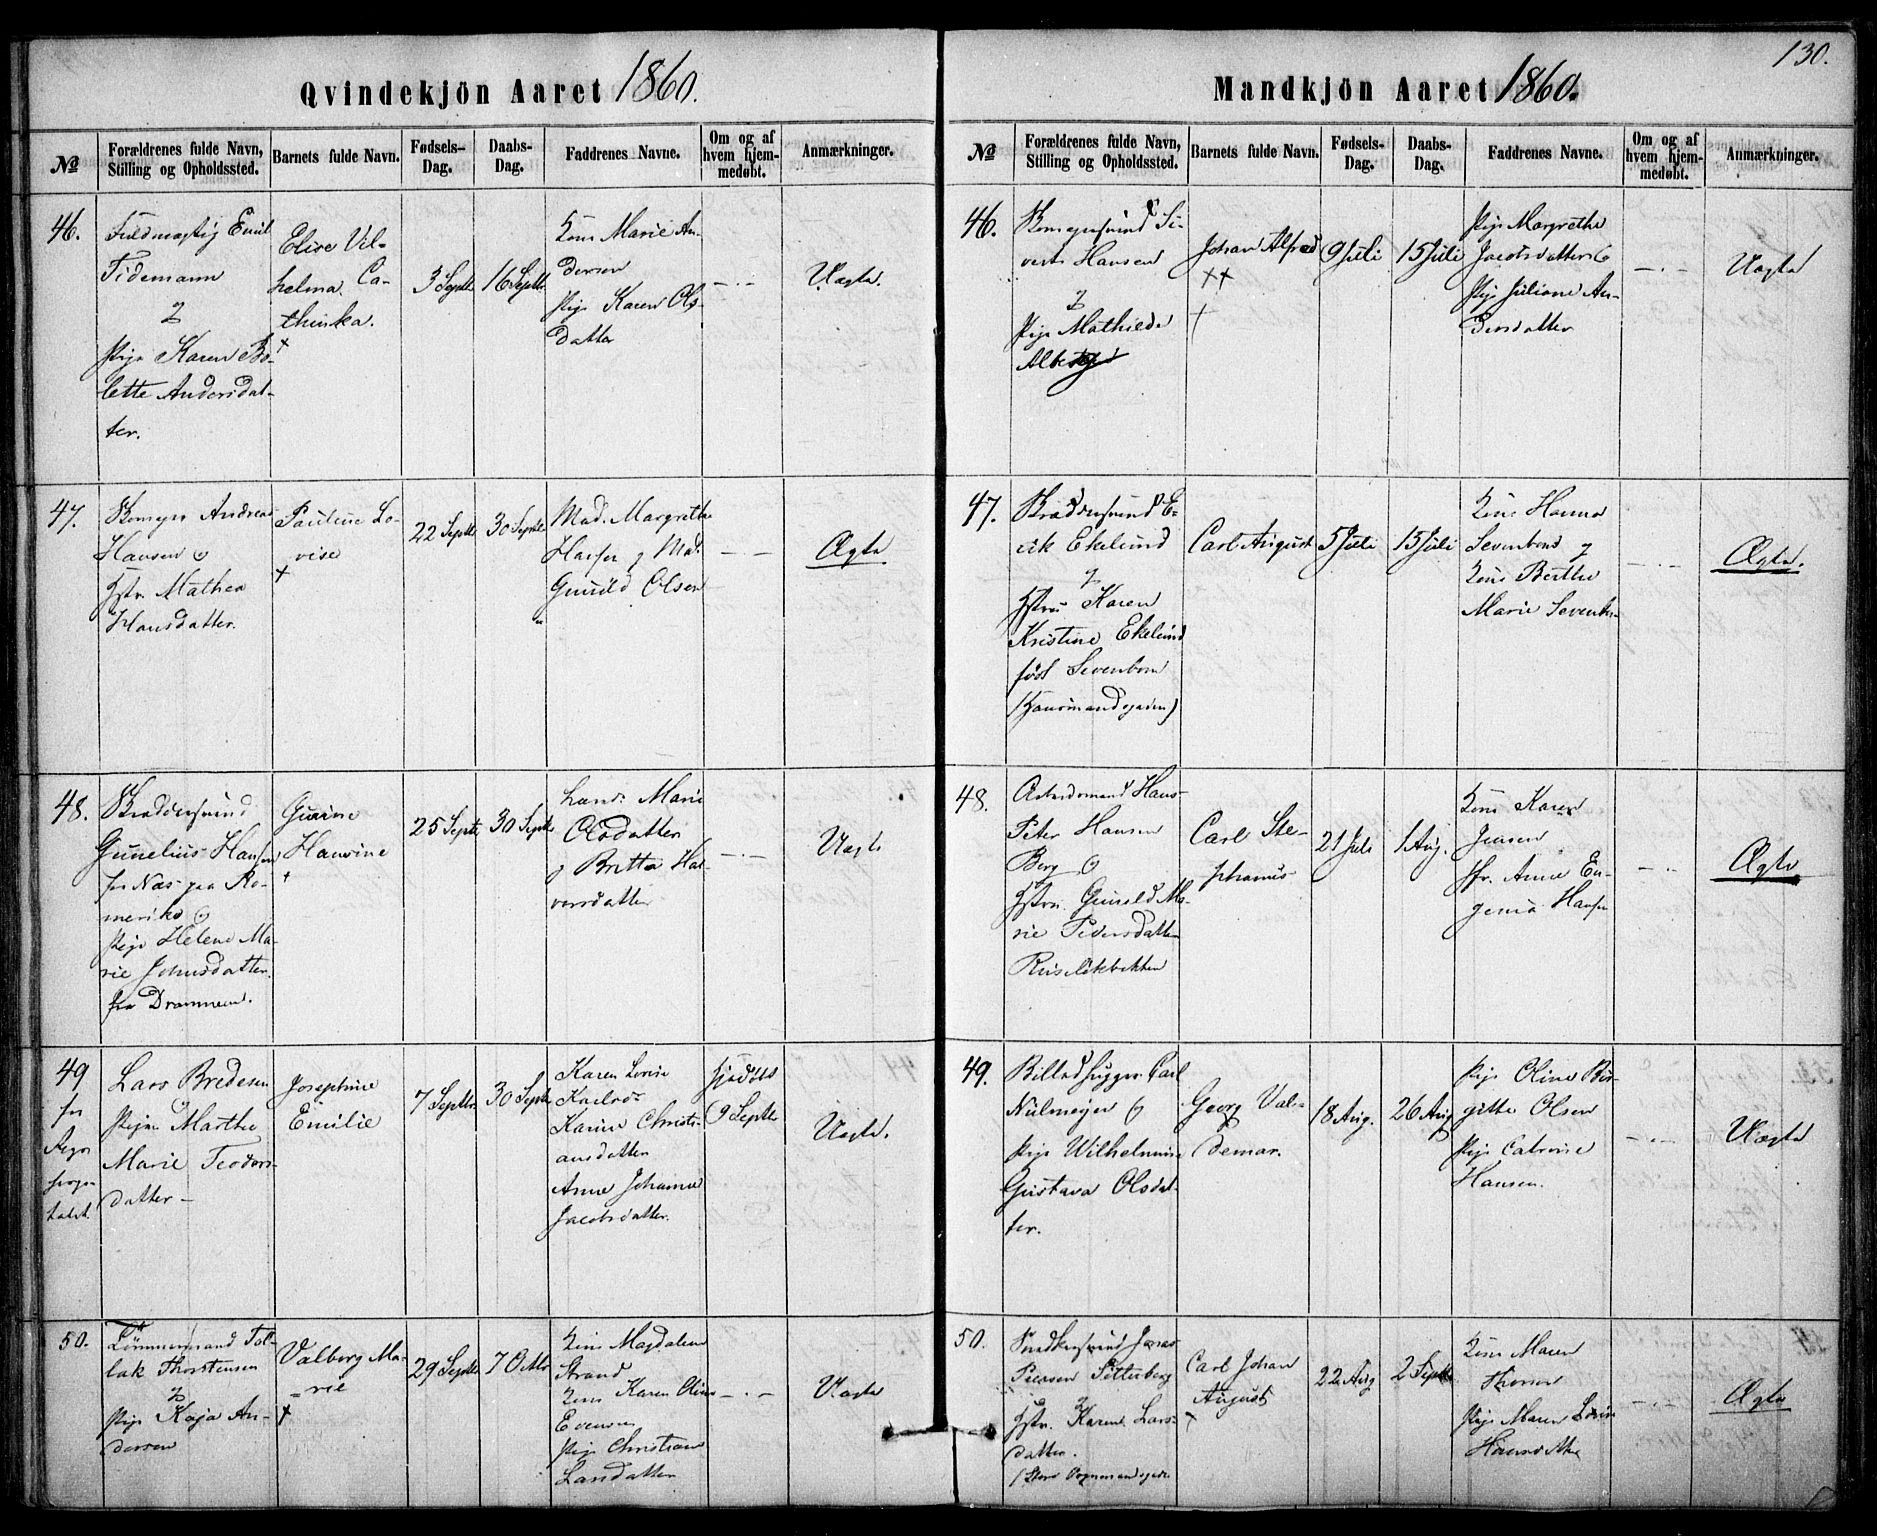 130.
Qvindekjön Aaret 1860.
No
Forældrenes fulde Navn, Stilling og Opholdssted.
Barnets fulde Navn.
Fødsels-Dag.
Daabs-Dag.
Faddrenes Navne.
Om og af hvem hjem-medøbt.
Anmærkninger.
46.
Fuldmægtig Emil
Tidemann
&
Pige Karen Bo-
lette Andersdat-
ter.
Elise Vil-
helma Ca-
thinka.
3 Septbr
16 Septbr
Kone Marie An-
dersen
Pige Karen Ols-
datter
Uægte.
47.
Andreas
Hansen &
Hstr. Mathea
Hansdatter.
Pauline Lo-
vise
22 Septbr
30 Septbr
Mad. Margrethe
Hansen & Mad.
Gunild Olsen
Ægte
48.
Skræddersvend
Gunelius Hansen
fra Næs paa Ro-
merike &
Pige Helene Ma-
rie Johnsdatter
fra Drammen.
Gurine
Hansine
25 Septbr
30 Septbr
Marie
Olsdatter
& Britta Hal-
vorsdatter
Uægte
49
Lars Bredesen
&
Pige Marthe
Marie Teodors-
datter
Josephine
Emilie
7 Septbr
30 Septbr
Karen Lovise
Karine Christi-
ansdatter
Anne Johanne
Jacobsdatter.
hjdøbt
9 Septbr
Uægte.
50.
Tömmermand Tol-
lak Thorstensen
&
Pige Kaja An-
dersen
Valborg Ma-
rie
29 Septbr
7 Octbr
Kone Magdalene
Strand
Kone Karen Oline
Evensen
Pige Christiane
Larsdatter
Uægte
Mandkjön Aaret 1860.
No
Forældrenes fulde Navn, Stilling og Opholdssted.
Barnets fulde Navn.
Fødsels-Dag.
Daabs-Dag.
Faddrenes Navne.
Om og af hvem hjem-medøbt.
Anmærkninger.
46.
Si-
vert Hansen
&
Pige Mathilde
Johan Alfred
9 Juli
15 Juli
Pige Margrethe
Jacobsdatter &
Pige Juliane An-
dersdatter
Uægte
47.
Skræddersvend E-
rik Ekelund
&
Hstru Karen
Kristine Ekelund
född Sevenbom
Carl August
5 Juli
15 Juli
Kone Hanna
Sevenbom &
Kone Berthe
Marie Sevenbom
Ægte.
48.
Arbeidsmand Hans
Peter Hansen
Berg &
Hstru Gunild Ma-
rie Pedersdatter
Ruseløkbakken
Carl Ste-
phanus
21 Juli
1 Aug.
Kone Karen
Jensen
Anne Eu-
genia Hansen
Ægte
49.
Billedhugger Carl
&
Pige Wilhelmine
Gustava Olsdat-
ter.
Georg Val-
demar.
18 Aug.
26 Aug
Pige Oline Bir-
gitte Olsen
Pige Catrine
Hansen.
Uægte
50.
Snedkersvend Jonas
&
Hstr. Karen Lars-
datter.
Carl Johan
August
22 Aug
2 Septbr
Kone Maren
Pige Maren Lovise
Ægte